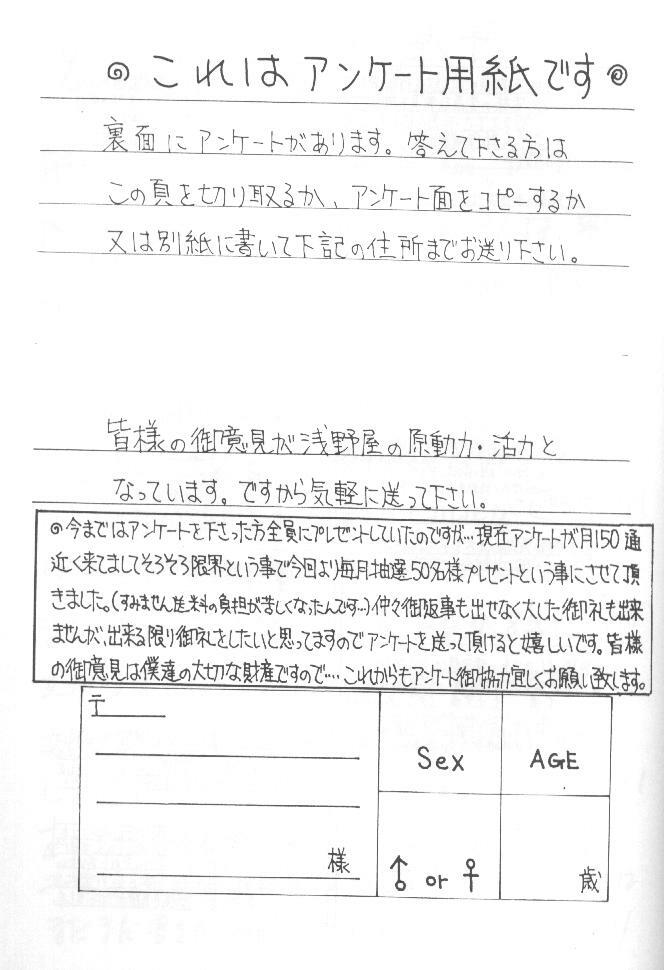 ◎ これはアンケート用紙です ◎
裏面にアンケートがあります。答えて下さる方は
この頁を切り取るか、アンケート面をコピーするか
又は別紙に書いて下記の住所までお送り下さい。
皆様の御意見が浅野屋の原動力・活力と
なっています。ですから気軽に送って下さい。
◎今まではアンケートを下さった方全員にプレゼントしていたのですが…現在アンケートが月150通
近く来てましてそろそろ限界という事で今回より毎月抽選50名様プレゼントという事にさせて頂
きました。(すみません送料の負担が苦しくなったんです…)仲々御返事も出せなく大した御礼も出来
ませんが、出来る限り御礼をしたいと思ってますのでアンケートを送って頂けると嬉しいです。皆様
の御意見は僕達の大切な財産ですので…これからもアンケート御協力宜しくお願い致します。
〒
Sex
AGE
様
♂ or ♀
歳